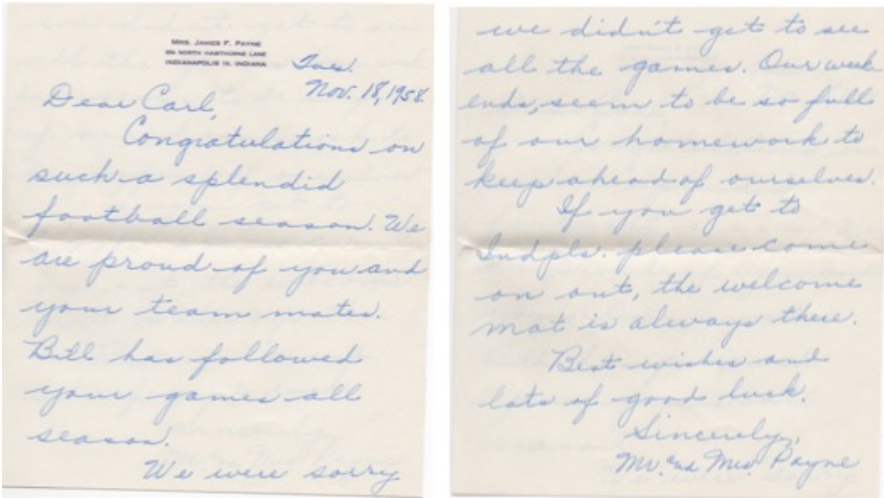 MRS. JAMES F. PAYNE
NORTH HAWTHORNE LANE
INDIANAPOLIS 19, INDIANA
Tues.
Nov. 18, 1958.
Dear Carl,
Congratulations on
such a splendid
football season. We
are proud of you and
your team mates.
Bill has followed
your games all
season.
We were sorry
we didn't get to see
all the games. Our week
ends, seem to be so full
of our homework to
keep ahead of ourselves.
If you get to
Indpls. please come
on out, the welcome
mat is always there.
Best wishes and
lots of good luck.
Sincerely,
Mr. and Mrs. Payne